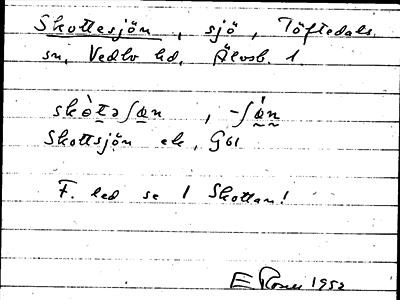 Skottesjön, sjö, Töftedals
sn, Vedbo hd, Älvsb. l
skòt̲əʃæ̲n, -ʃǽn
Skottsjön ek, G61
F. led se 1 Skottan!
E Roner 1952